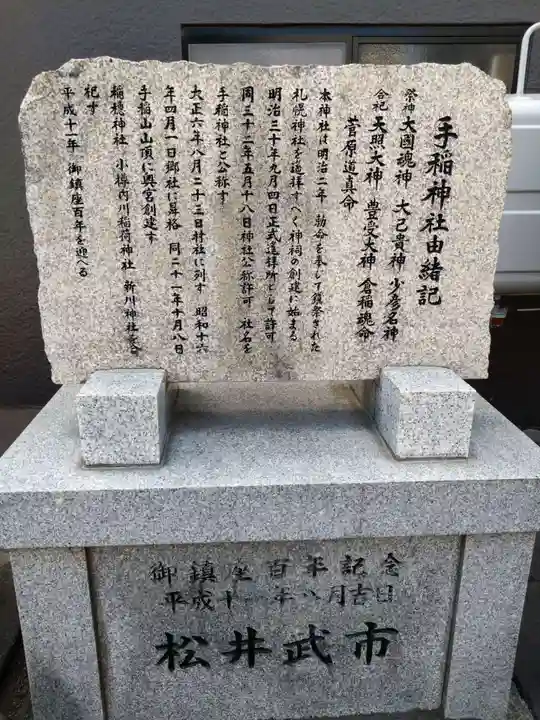 手稲神社由緒記
祭神 大國魂神 大己貴神 少彦名神
合祀 天照大神 豊受大神 倉稲魂命
菅原道真命
本神社は明治二年 勅命を奉じて鎮祭された
札幌神社を遥拝すべく神祠の創建に始まる
明治三十年九月四日正式遥拝所として許可
同三十二年五月十八日神社公称許可 社名を
手稲神社と公称す
大正六年八月二十三日村社に列す 昭和十六
年四月一日郷社に昇格 同二十一年十月八日
手稲山山頂に奥宮創建す
稲穂神社 小樽内川稲荷神社 新川神社を合
祀す
平成十一年 御鎮座百年を迎へる
御鎮座百年記念
平成十一年八月吉日
松井武市